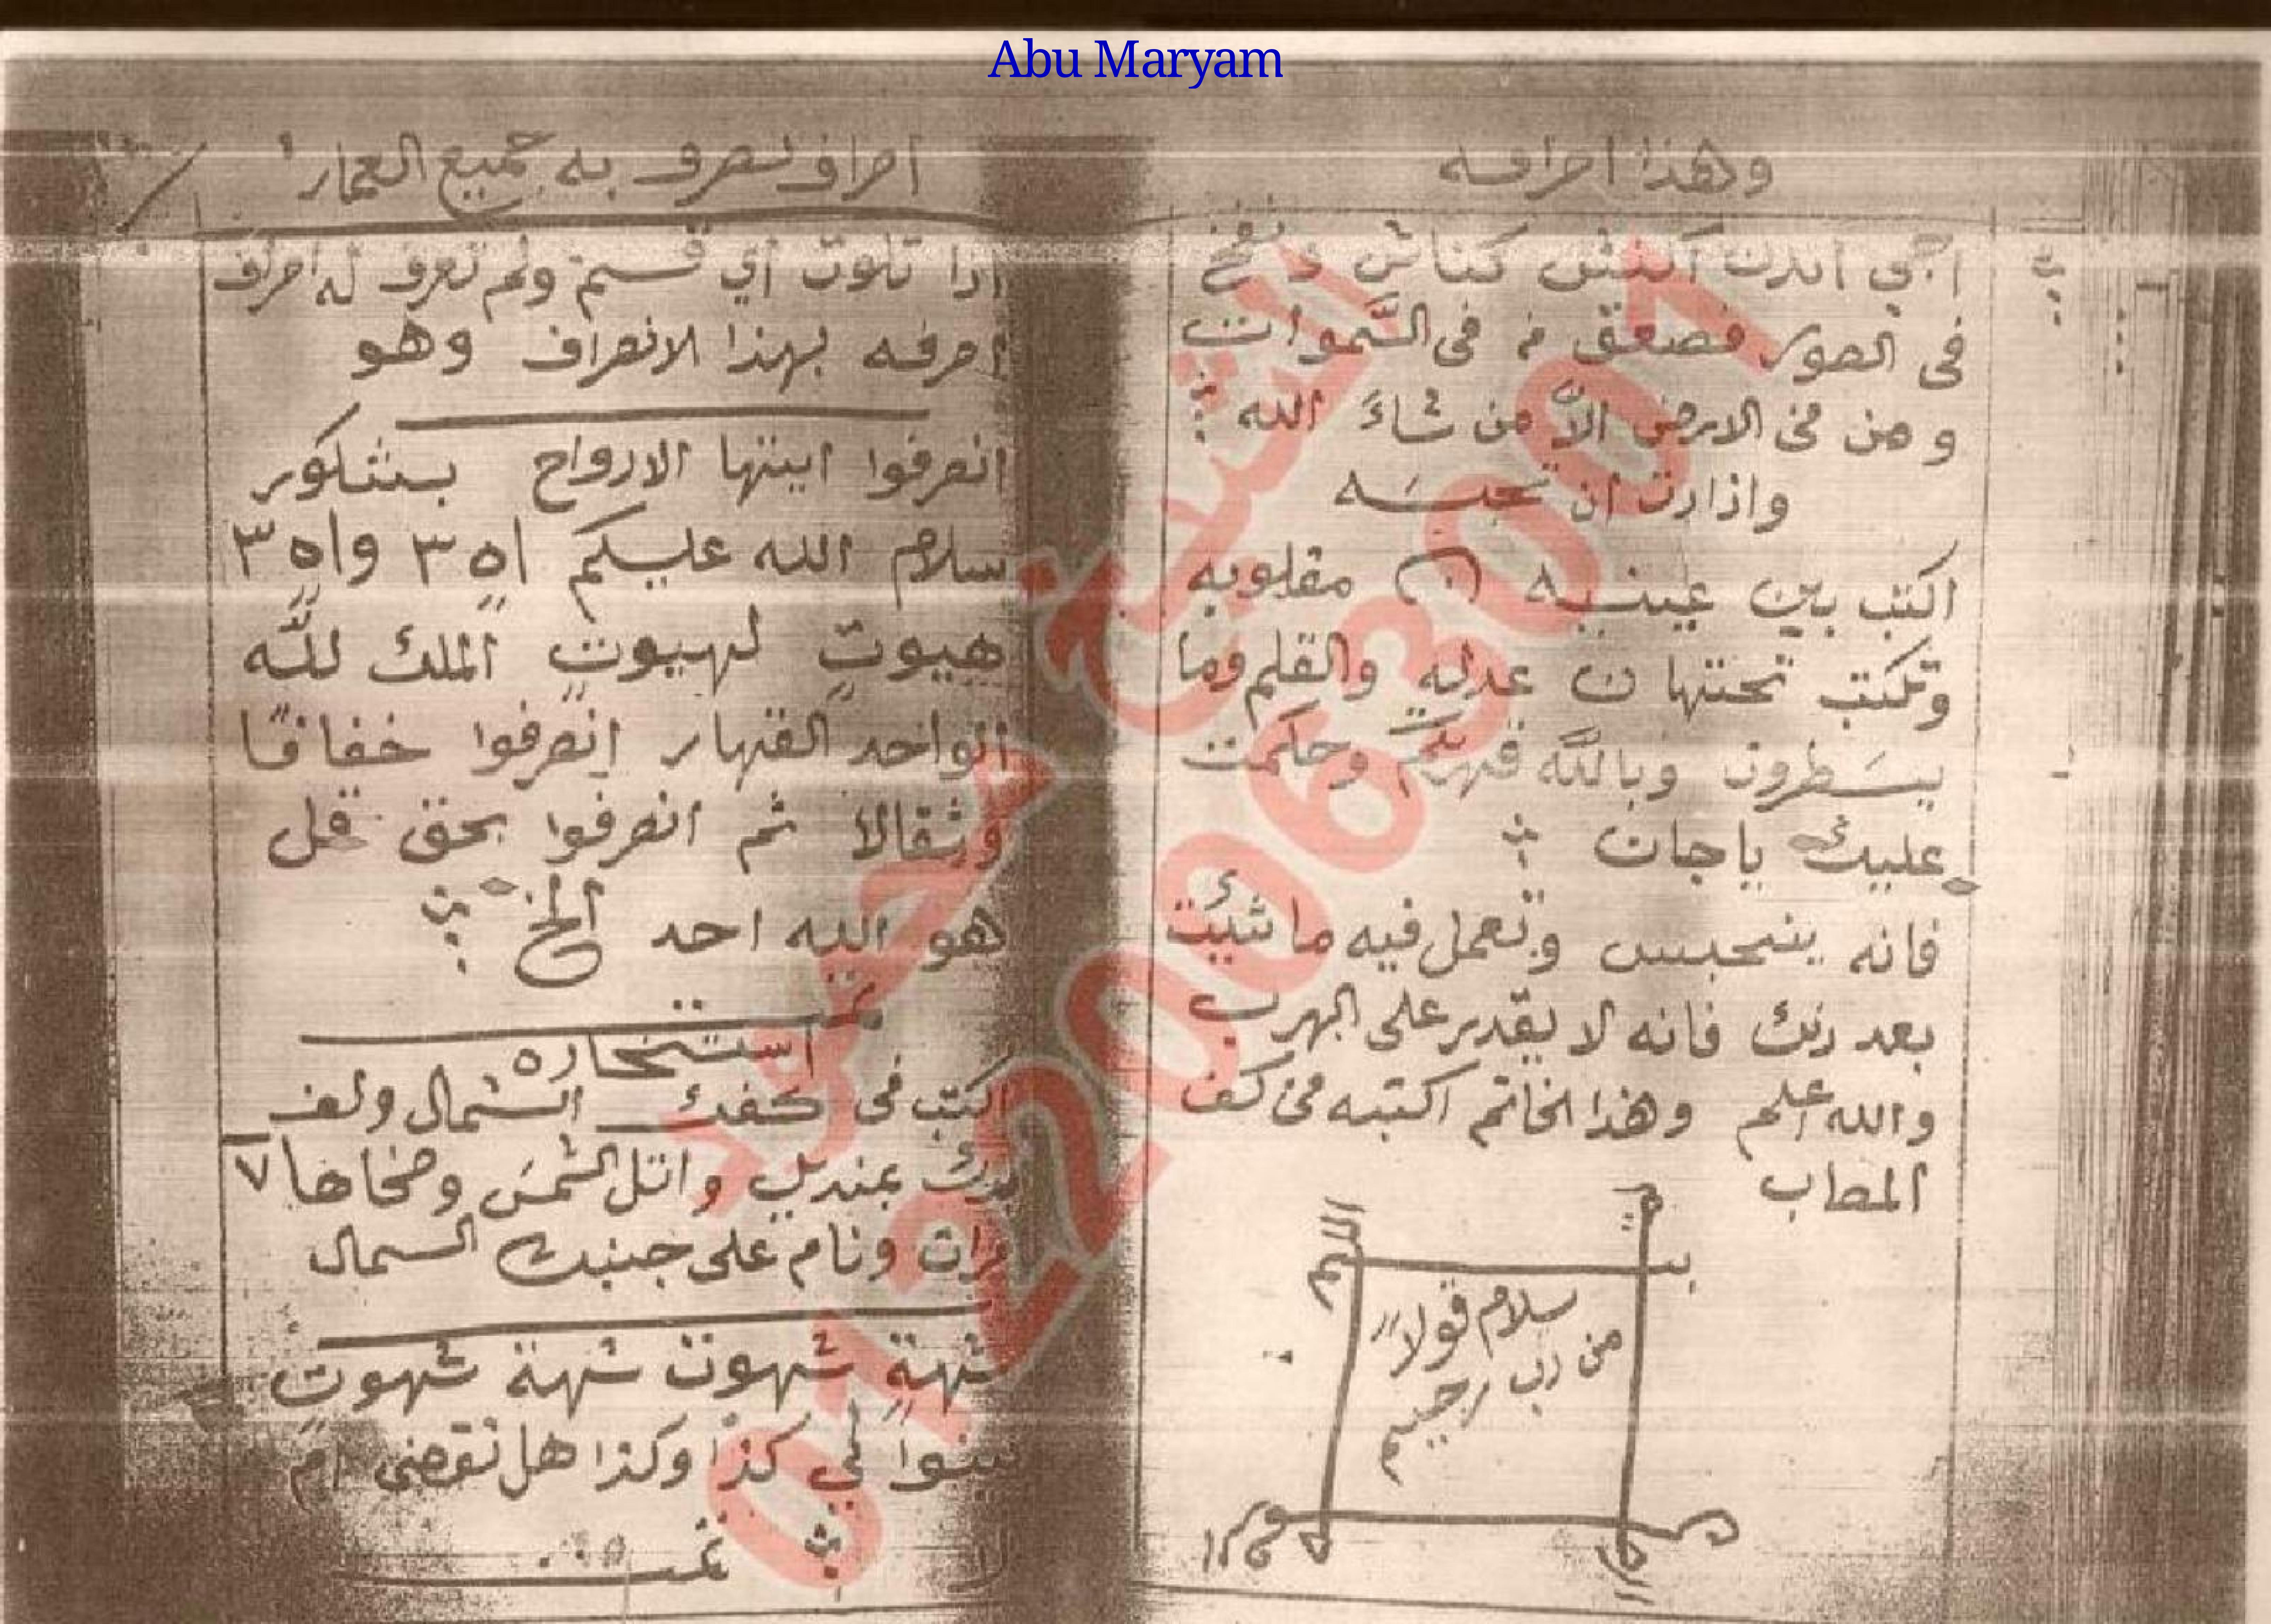 Abu Maryam
وهذا احرافه
اكنش كناش ونفخ
فى الصور فصعق م فى السَّموات
ومن فى الارض الاَّ من شاءَ الله
واذاردت ان تحبسَه
اكتب بين عينيه ن مقلوبه
وتكتب تحتها ن عدله والقلم وما
يسَطرون وبالله قهرتكم وحكمت
عليك ياجان
فانه ينحبس وتعمل فيه ما شئت
بعد ذلك فانه لا يقدر على الهرب
والله اعلم وهذا الخاتم اكتبه فى كف
المصاب
سلام قولاً
من رب رحيم
احراف تصرف به جميع العمار
اذا تلوت اي قسم ولم تعرف له احراف
احرفه بهذا الانصراف وهو
انصرفوا ايتها الارواح بشكور
سلام الله عليكم اه ٣ واه ٣
هيوت لهيوت الملك للَّه
الواحد القهار انصرفوا خفافًا
وثقالا ثم انصرفوا بحق قل
هو الله احد الخ
استخاره
اكتب فى كفك الشمال ولف
يدك بمنديل واتل الشمسَ وضحاها ٧
مرات ونام على جنبك السمال
شهةٍ شهوت شهة شهوتٍ
بينوا لي كذا وكذا هل تقضى ام
لا تمت
الشيخ محمود
01220063001